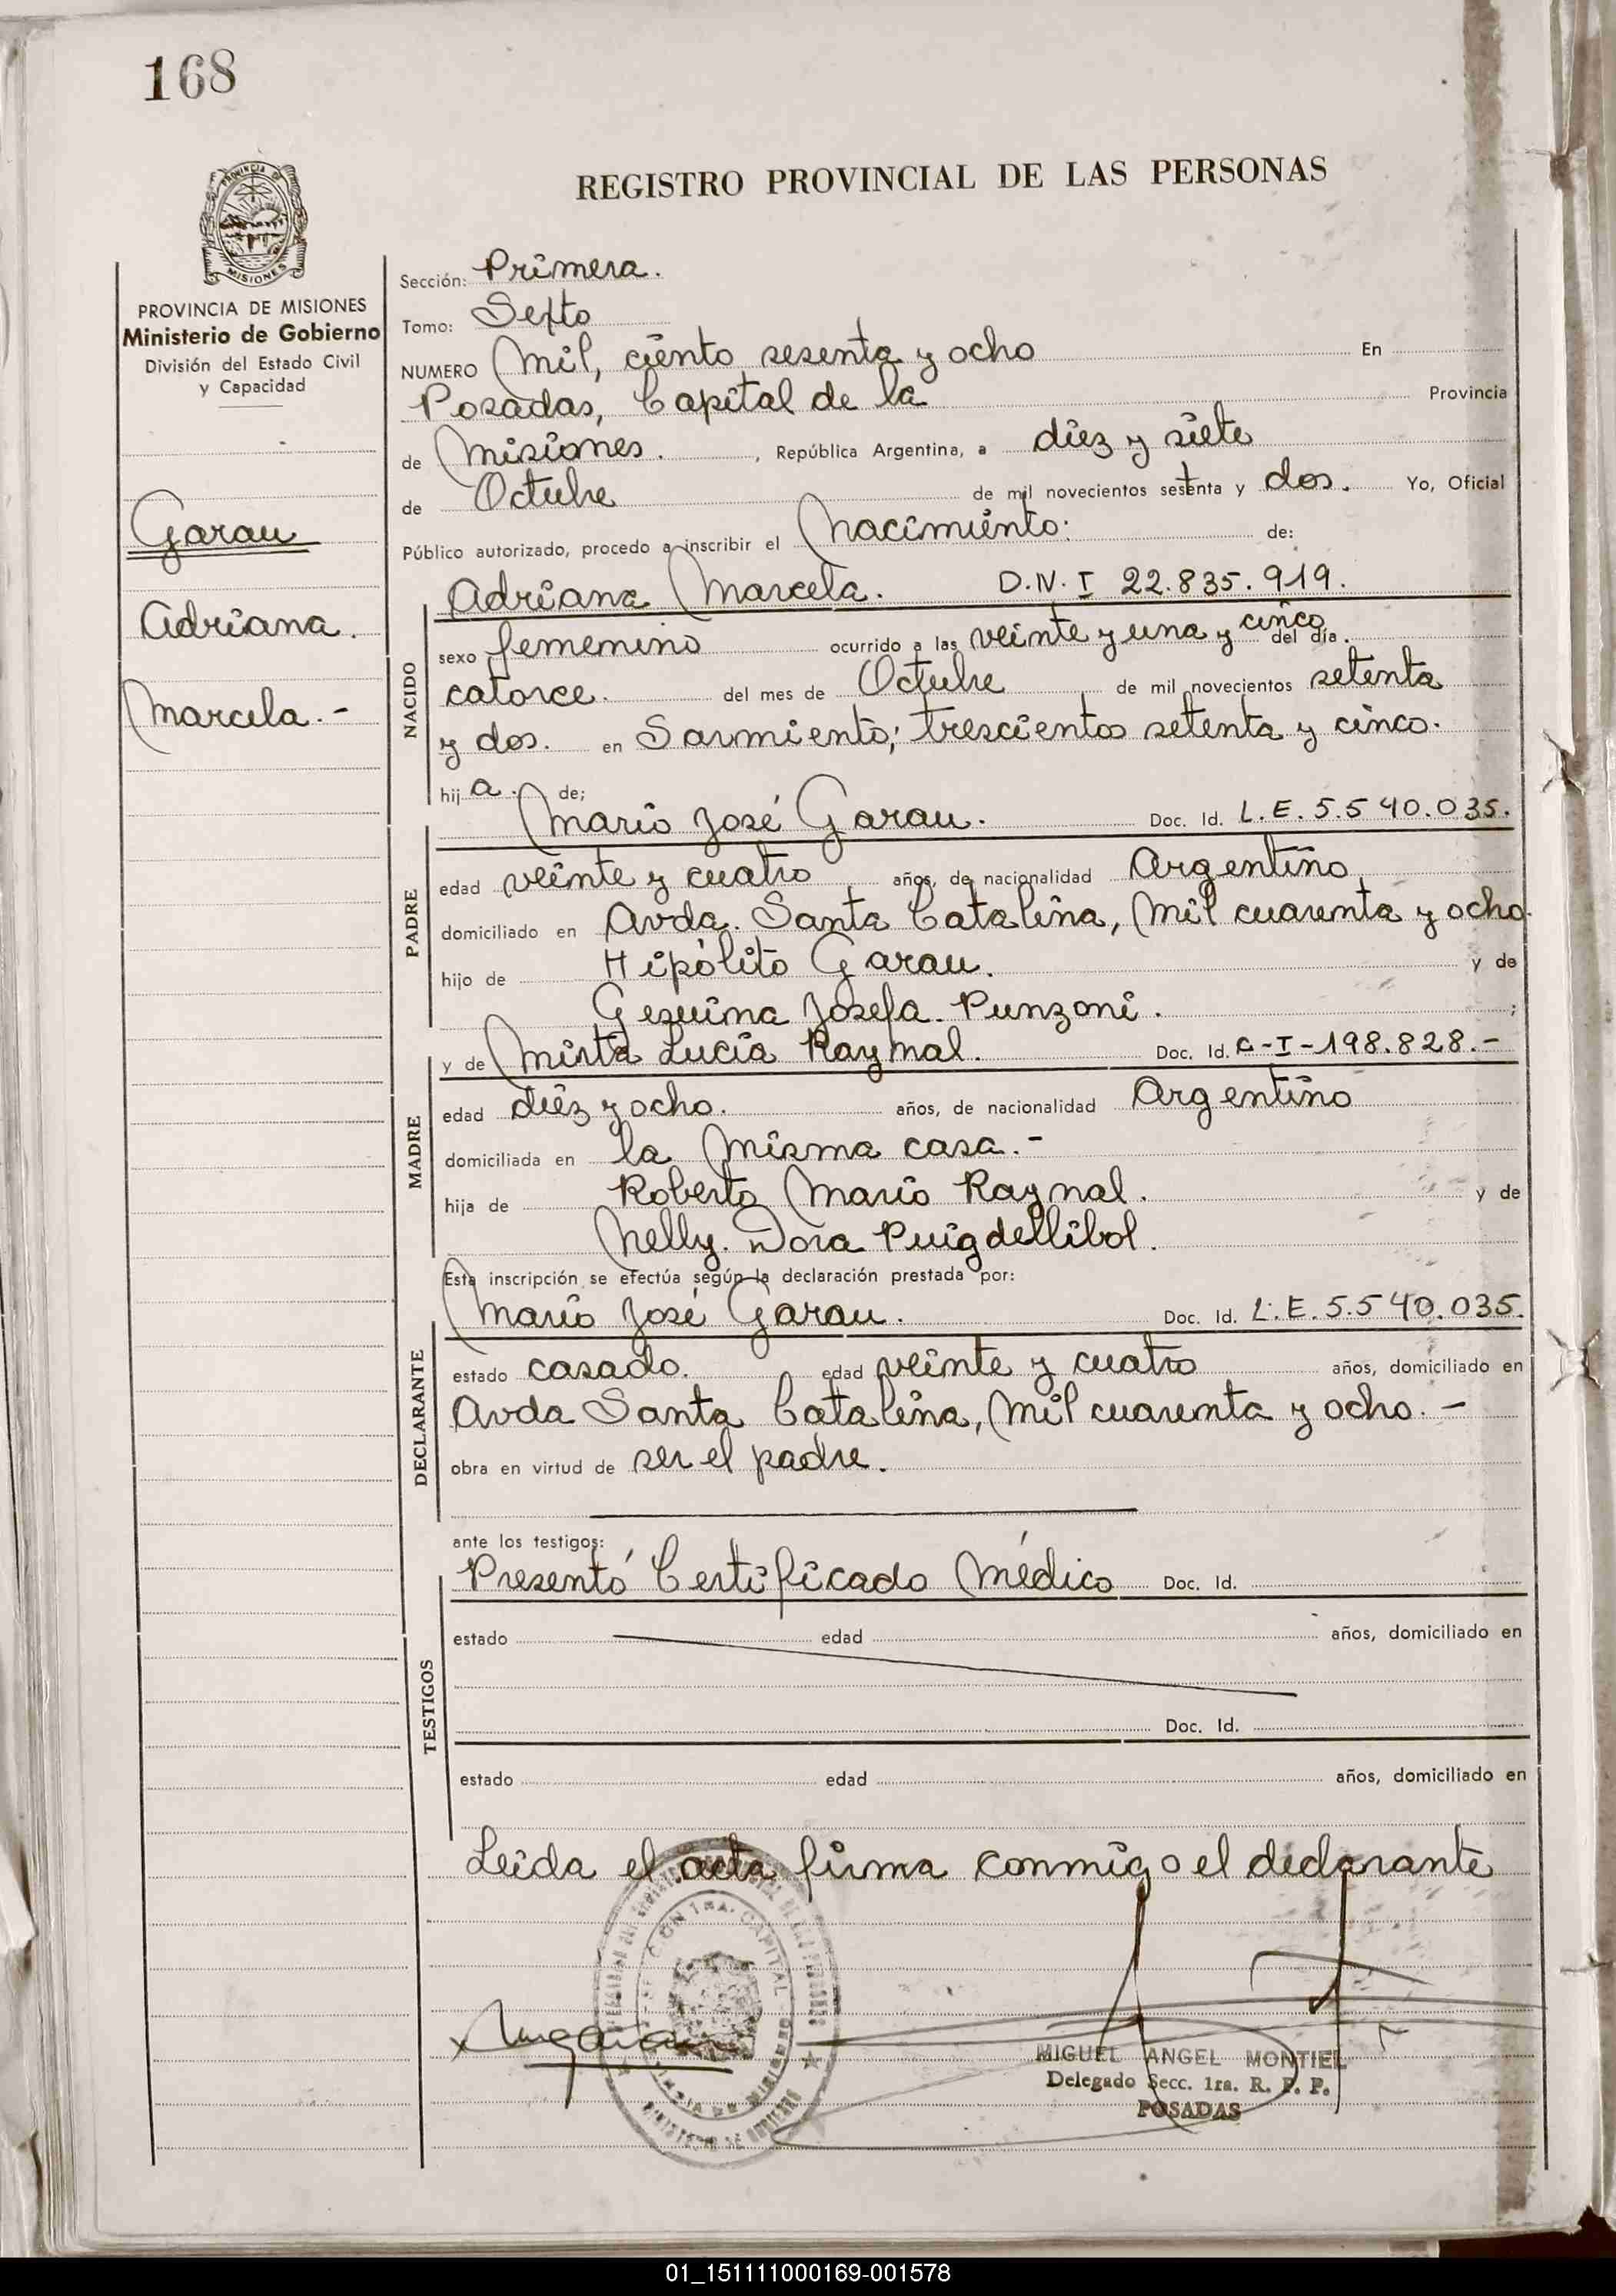 168
REGISTRO PROVINCIAL DE LAS PERSONAS
PROVINCIA DE
MISIONES
PROVINCIA DE MISIONES
Ministerio de Gobierno
División del Estado Civil
y Capacidad
Garau
Adriana.
Marcela.-
Sección: Primera.
Tomo: Sexto
NUMERO Mil, ciento sesenta y ocho En
Posadas, Capital de la Provincia
de Misiones. , República Argentina, a diez y siete
de Octubre de mil novecientos setenta y dos. Yo, Oficial
Público autorizado, procedo a inscribir el Nacimiento: de:
Adriana Marcela. D.N.I 22.835.919.
NACIDO
sexo femenino ocurrido a las veinte y una y cinco del día.
catorce. del mes de Octubre de mil novecientos setenta
y dos. en Sarmiento; trescientos setenta y cinco.
hija. de;
Mario José Garau. Doc. Id. L.E. 5.540.035.
PADRE
edad veinte y cuatro años, de nacionalidad Argentino
domiciliado en Avda. Santa Catalina, Mil cuarenta y ocho.
hijo de Hipólito Garau. y de
Gesuina Josefa. Punzoni. ;
y de Mirta Lucia Raynal. Doc. Id. C-I-198.828.-
MADRE
edad diez y ocho. años, de nacionalidad Argentino
domiciliada en la Misma casa.-
hija de Roberto Mario Raynal. y de
Nelly. Dora Puigdellibol.
Esta inscripción se efectúa según la declaración prestada por:
Mario José Garau. Doc. Id. L.E. 5.540.035.
DECLARANTE
estado casado. edad veinte y cuatro años, domiciliado en
Avda Santa Catalina, Mil cuarenta y ocho.-
obra en virtud de ser el padre.
ante los testigos:
Presentó Certificado Médico Doc. Id.
TESTIGOS
estado edad años, domiciliado en
Doc. Id.
estado edad años, domiciliado en
Leida el acta firma conmigo el declarante
MIGUEL ANGEL MONTIEL
Delegado Secc. 1ra. R. P. P.
POSADAS
01_151111000169-001578